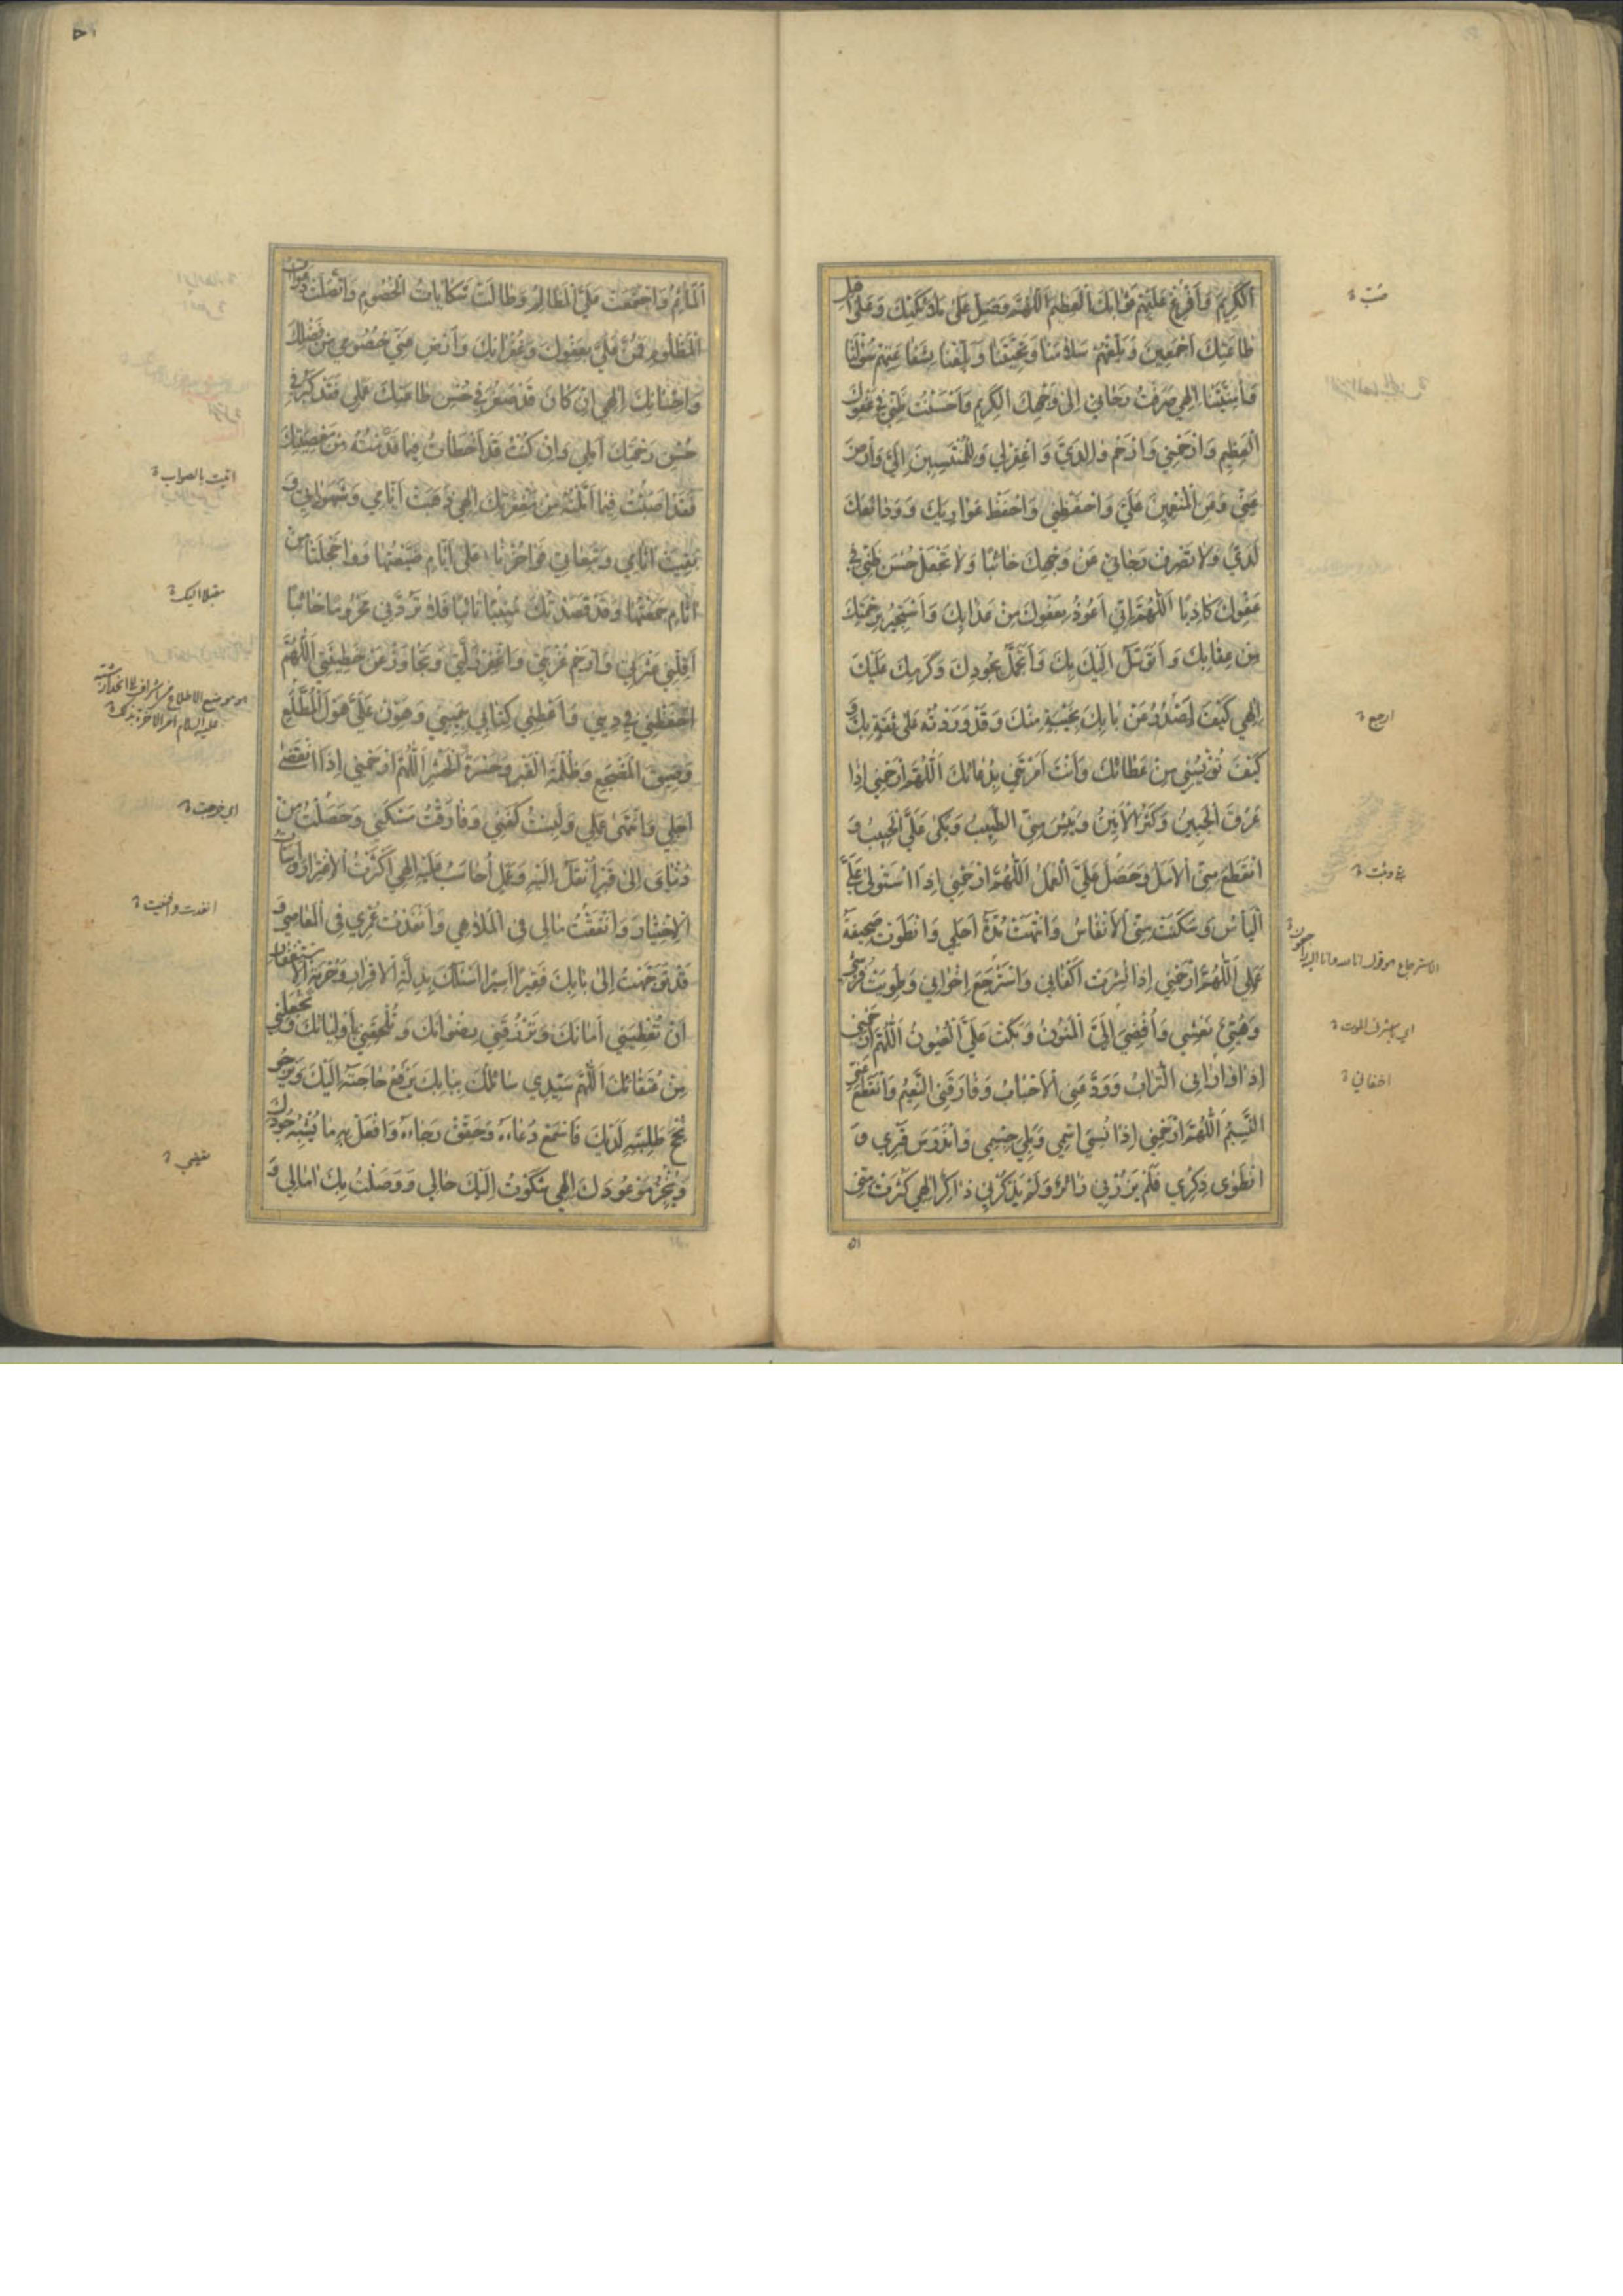 الْكَرِيمَ وَأَفْرِغْ عَلَيْهِمْ ثَوَابَكَ الْعَظِيمَ اللّٰهُمَّ وَصَلِّ عَلٰى مَلَائِكَتِكَ وَعَلٰى اَهْلِ
طَاعَتِكَ اَجْمَعِينَ وَبَلِّغْهُمْ سَلَامَنَا وَتَحِيَّتَنَا وَبَلِّغْنَا بِشَفَاعَتِهِمْ سُؤْلَنَا
وَاُمْنِيَّتَنَا اِلٰهِي صَرَفْتُ رَجَائِي اِلٰى وَجْهِكَ الْكَرِيمِ وَاَحْسَنْتُ ظَنِّي فِي عَفْوِكَ
الْعَظِيمِ وَارْحَمْنِي وَارْحَمْ وَالِدَيَّ وَاغْفِرْ لِي وَلِلْمُنْتَسِبِينَ اِلَيَّ وَارْضَ
عَنِّي وَعَنِ الْمُنْعِمِينَ عَلَيَّ وَاحْفَظْنِي وَاحْفَظْ عَوَارِيكَ وَوَدَائِعَكَ
لَدَيَّ وَلَا تَصْرِفْ رَجَائِي عَنْ وَجْهِكَ خَائِبًا وَلَا تَجْعَلْ حُسْنَ ظَنِّي فِي
عَفْوِكَ كَاذِبًا اَللّٰهُمَّ اِنِّي اَعُوذُ بِعَفْوِكَ مِنْ عَذَابِكَ وَاَسْتَجِيرُ بِرَحْمَتِكَ
مِنْ عِقَابِكَ وَاَتَوَسَّلُ اِلَيْكَ بِكَ وَاَتَحَمَّلُ بِجُودِكَ وَكَرَمِكَ عَلَيْكَ
اِلٰهِي كَيْفَ اَصْدُرُ عَنْ بَابِكَ بِخَيْبَةٍ مِنْكَ وَقَدْ وَرَدْتُهُ عَلٰى ثِقَةٍ بِكَ وَ
كَيْفَ تُؤْيِسُنِي مِنْ عَطَائِكَ وَاَنْتَ اَمَرْتَنِي بِدُعَائِكَ اَللّٰهُمَّ ارْحَمْنِي اِذَا
عَرِقَ الْجَبِينُ وَكَثُرَ الْاَنِينُ وَيَئِسَ مِنِّي الطَّبِيبُ وَبَكٰى عَلَيَّ الْحَبِيبُ وَ
انْقَطَعَ مِنِّي الْاَمَلُ وَحَصَلَ عَلَيَّ الْعَمَلُ اَللّٰهُمَّ ارْحَمْنِي اِذَا اسْتَوْلٰى عَلَيَّ
الْيَأْسُ وَسَكَنَتْ مِنِّي الْاَنْفَاسُ وَانْتَهَتْ مُدَّةُ اَجَلِي وَانْطَوَتْ صَحِيفَةُ
عَمَلِي اَللّٰهُمَّ ارْحَمْنِي اِذَا نُشِرَتْ اَكْفَانِي وَاسْتَرْجَعَ اِخْوَانِي وَطُوِيَتْ فُرُشِي
وَهُيِّئَ نَعْشِي وَاُفْضِيَ اِلَيَّ الْمَنُونُ وَبَكَتْ عَلَيَّ الْعُيُونُ اَللّٰهُمَّ ارْحَمْنِي
اِذَا وَارَانِي التُّرَابُ وَوَدَّعَنِي الْاَحْبَابُ وَفَارَقَنِي النَّعِيمُ وَانْقَطَعَ عَنِّي
النَّسِيمُ اَللّٰهُمَّ ارْحَمْنِي اِذَا نُسِيَ اسْمِي وَبَلِيَ جِسْمِي وَانْدَرَسَ قَبْرِي وَ
انْطَوٰى ذِكْرِي فَلَمْ يَزُرْنِي زَائِرٌ وَلَمْ يَذْكُرْنِي ذَاكِرٌ اِلٰهِي كَثُرَتْ مِنِّي
صُبّ
ارجع
الاسترجاع هو قول انا لله وانا اليه راجعون
اخفاني
٥١
الْمَآثِمُ وَاجْتَمَعَتْ عَلَيَّ الْمَظَالِمُ وَطَالَتْ شَكَايَاتُ الْخُصُومِ وَاتَّصَلَتْ دَعْوَاتُ
الْمَظْلُومِ فَمُنَّ عَلَيَّ بِعَفْوِكَ وَغُفْرَانِكَ وَاَرْضِ عَنِّي خُصُومِي مِنْ فَضْلِكَ
وَاِحْسَانِكَ اِلٰهِي اِنْ كَانَ قَدْ صَغُرَ فِي حُسْنِ طَاعَتِكَ عَمَلِي فَقَدْ كَبُرَ فِي
حُسْنِ رَحْمَتِكَ اَمَلِي وَاِنْ كُنْتُ قَدْ اَخْطَأْتُ فِيمَا قَدَّمْتُهُ مِنْ مَعْصِيَتِكَ
فَقَدْ اَصَبْتُ فِيمَا اَمَّلْتُهُ مِنْ مَغْفِرَتِكَ اِلٰهِي ذَهَبَتْ اَيَّامِي وَشَهَوَاتِي وَ
بَقِيَتْ آثَامِي وَتَبِعَاتِي فَوَاحُزْنَاهُ عَلٰى اَيَّامٍ ضَيَّعْتُهَا وَوَاخَجْلَتَا مِنْ
آثَامٍ جَمَعْتُهَا وَقَدْ قَصَدْتُكَ مُنِيبًا تَائِبًا فَلَا تَرُدَّنِي مَحْرُومًا خَائِبًا
اَقِلْنِي عَثْرَتِي وَارْحَمْ غُرْبَتِي وَاغْفِرْ زَلَّتِي وَتَجَاوَزْ عَنْ خَطِيئَتِي اَللّٰهُمَّ
احْفَظْنِي فِي دِينِي وَاَعْطِنِي كِتَابِي بِيَمِينِي وَهَوِّنْ عَلَيَّ هَوْلَ الْمُطَّلَعِ
وَضِيقَ الْمَضْجَعِ وَظُلْمَةَ الْقَبْرِ وَحَسْرَةَ الْحَشْرِ اَللّٰهُمَّ ارْحَمْنِي اِذَا انْقَضٰى
اَجَلِي وَانْتَهٰى عَمَلِي وَلَبِسْتُ كَفَنِي وَفَارَقْتُ سَكَنِي وَحَصَلْتُ مِنْ
دُنْيَايَ اِلٰى قَبْرٍ اُنْقَلُ اِلَيْهِ وَعَمَلٍ اُحَاسَبُ عَلَيْهِ اِلٰهِي اَكْثَرْتُ الْاِغْتِرَارَ وَاَسَأْتُ
الْاِخْتِيَارَ وَاَنْفَقْتُ مَالِي فِي الْمَلَاهِي وَاَنْفَدْتُ عُمْرِي فِي الْمَعَاصِي وَ
قَدْ تَوَجَّهْتُ اِلٰى بَابِكَ فَقِيرًا اَسِيرًا اَسْئَلُكَ بِذِلَّةِ الْاِقْرَارِ وَحُرْمَةِ الْاِسْتِغْفَارِ
اَنْ تُعْطِيَنِي اَمَانَكَ وَتَرْزُقَنِي رِضْوَانَكَ وَتُلْحِقَنِي بِاَوْلِيَائِكَ وَتَجْعَلَنِي
مِنْ عُتَقَائِكَ اَللّٰهُمَّ سَيِّدِي سَائِلُكَ بِبَابِكَ يَرْفَعُ حَاجَتَهُ اِلَيْكَ وَيَرْجُو
نُجْحَ طَلِبَتِهِ لَدَيْكَ فَاسْمَعْ دُعَاءَهُ وَحَقِّقْ رَجَاءَهُ وَافْعَلْ بِهِ مَا يُشْبِهُ جُودَكَ
وَيُنْجِزُ مَوْعُودَكَ اِلٰهِي شَكَوْتُ اِلَيْكَ حَالِي وَوَصَلْتُ بِكَ آمَالِي وَ
اتيت بالصواب
مقبلا اليك
اي خرجت
انفدت وافنيت